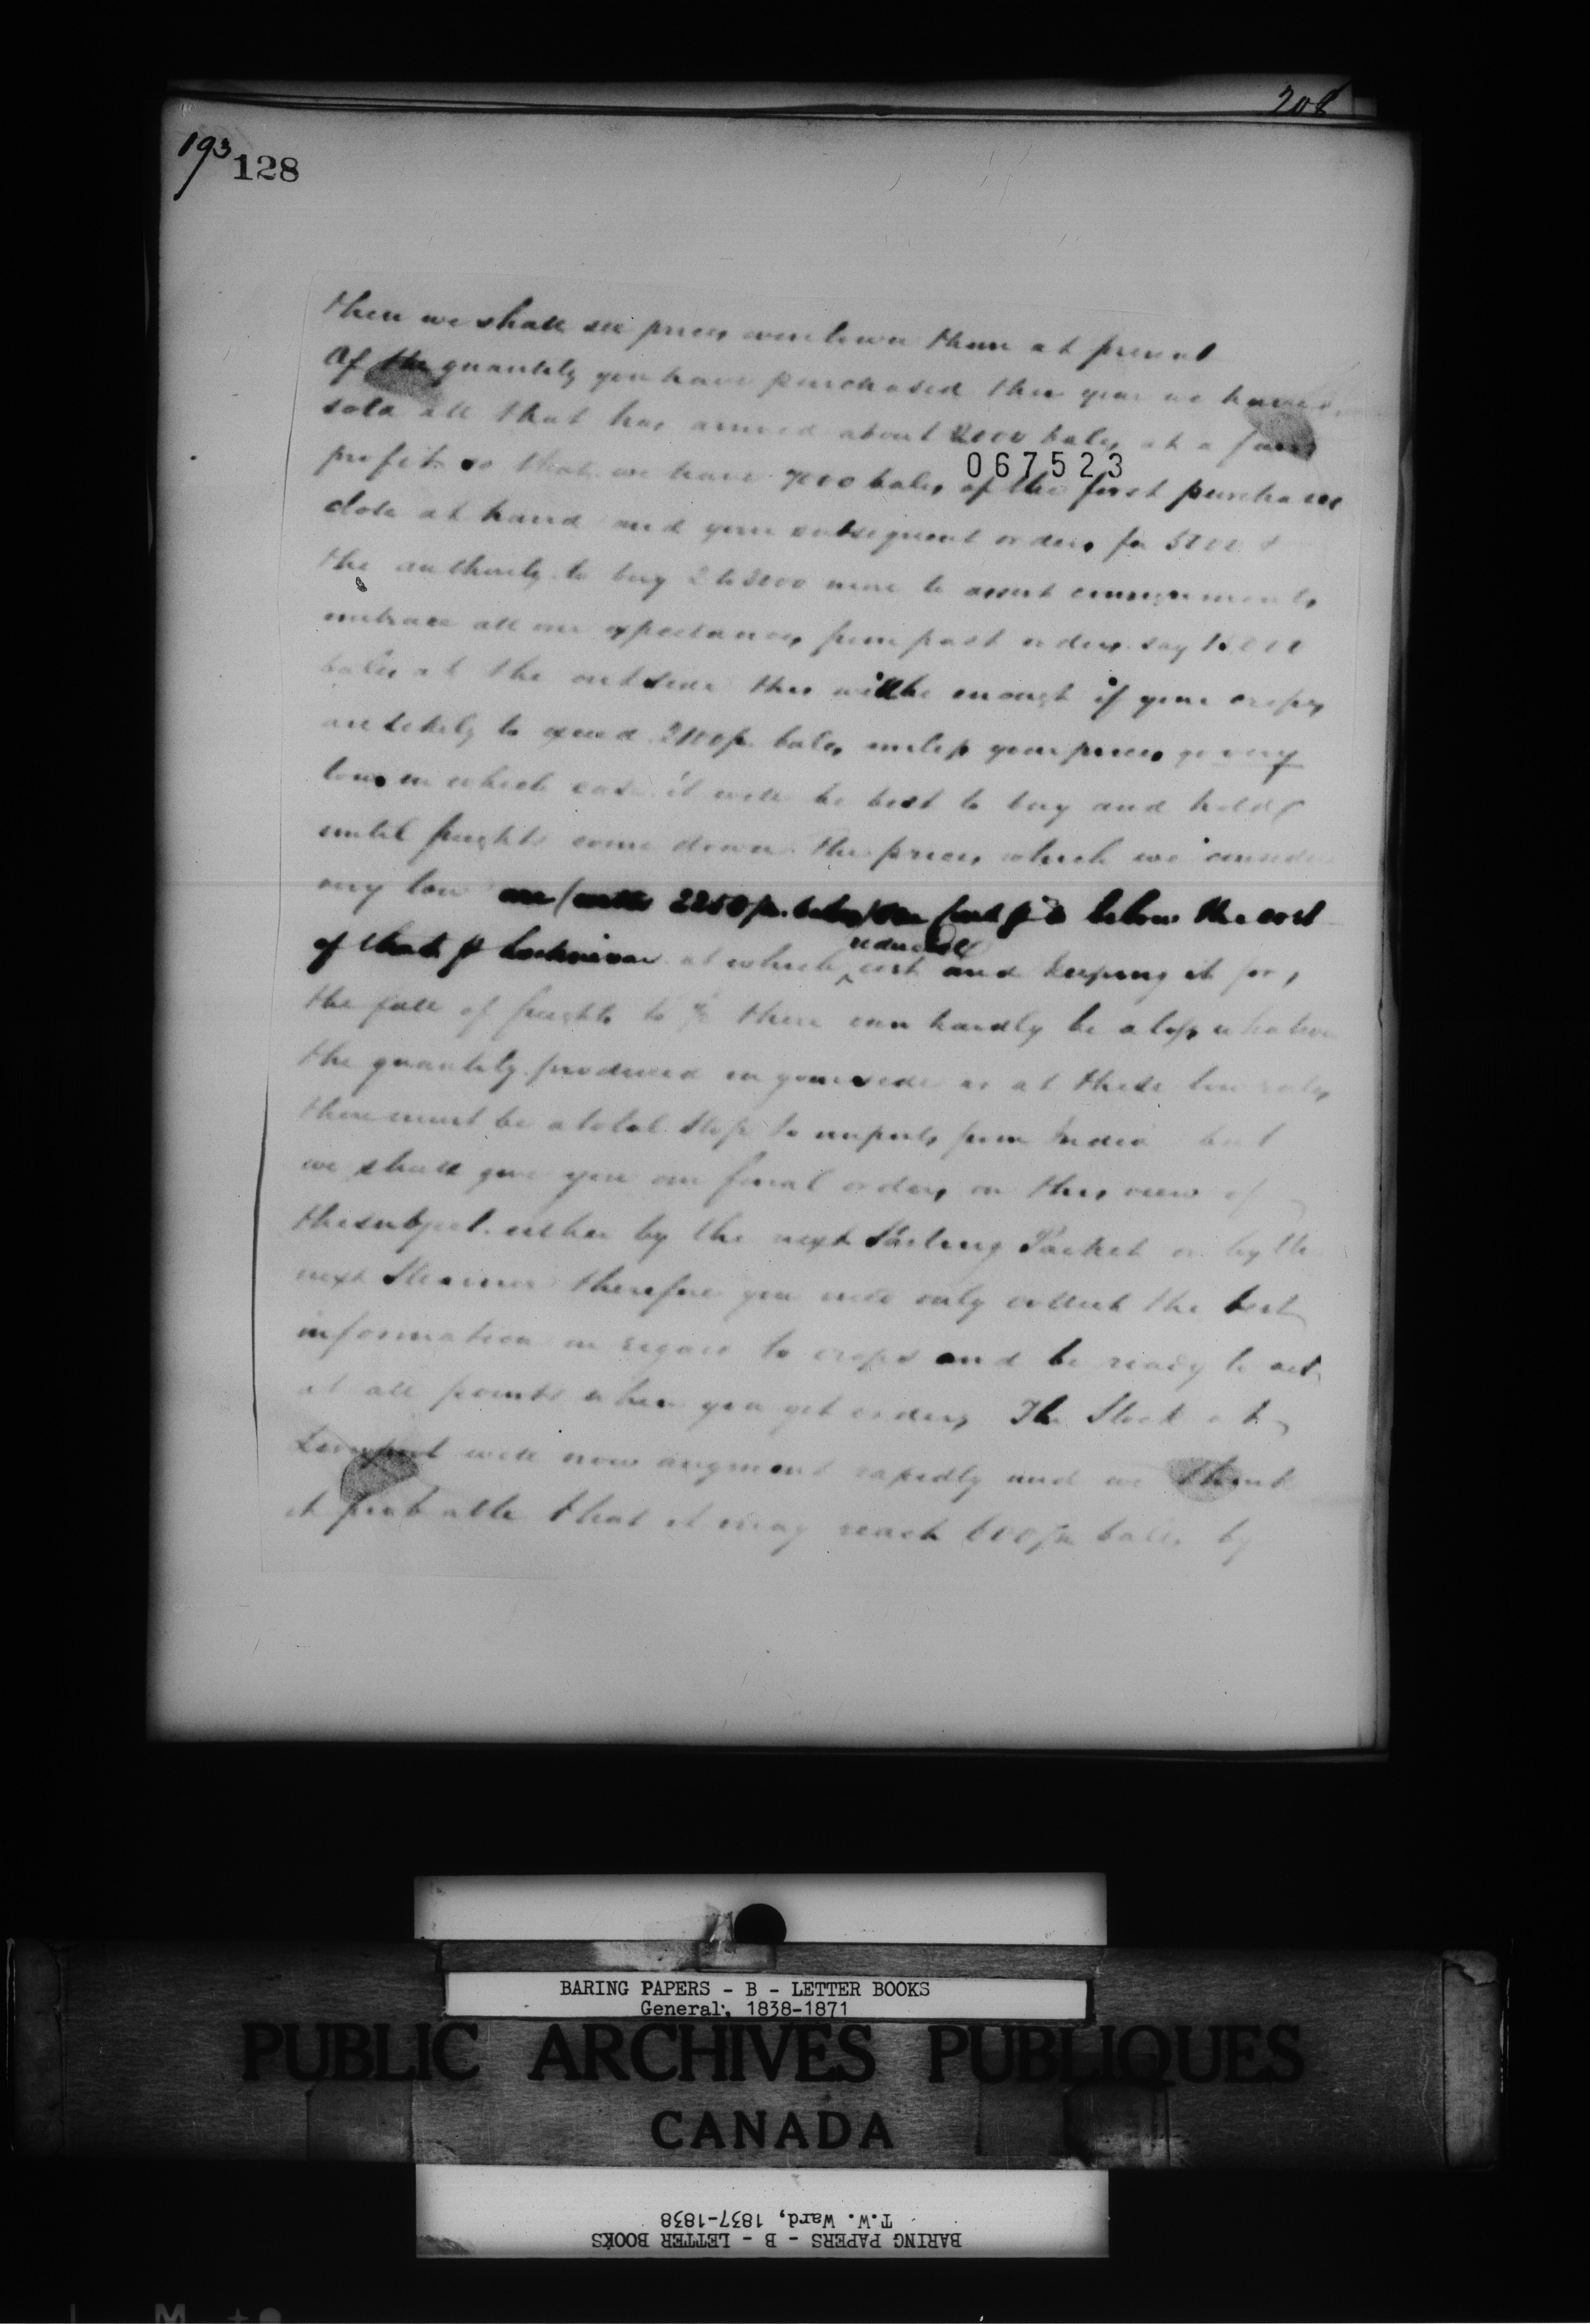 208
193
128
then we shall see prices even lower than at present
Of the quantity you have purchased this year we have
sold all that has arrived about 2000 bales at a fair
067523
profit so that we have 7000 bales of the first purchase
close at hand and your subsequent orders for 5000 &
the authority to buy 2 to 3000 more to assist consignments
embrace all our expectances from past orders say
bales at the outside this will be enough if your crops
are likely to exceed bales unless your prices go very
low in which case it will be best to buy and hold
until freights come down. The prices which we consider
very low are (with 2250/m bales) below the cost
of that p at which reduced cost and keeping it for
the fall of freights to there can hardly be a loss whatever
the quantity produced on your side as at these low rates
there must be a total stop to imports from India but
we shall give you our final orders on this view of
the subject either by the next Sailing Packet or by the
next Steamer therefore you need only collect the best
information in regard to crops and be ready to act
at all points when you get orders The Stock at
Liverpool will now augment rapidly and we think
it probable that it may reach bales by
BARING PAPERS - B - LETTER BOOKS
General, 1838-1871
PUBLIC ARCHIVES PUBLIQUES
CANADA
T.W. Ward, 1837-1838
BARING PAPERS - B - LETTER BOOKS